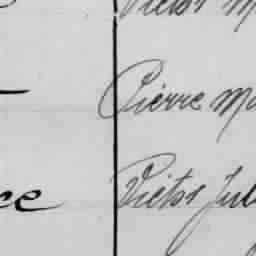 Victor M
Pierre Ma
ce Victor Jul